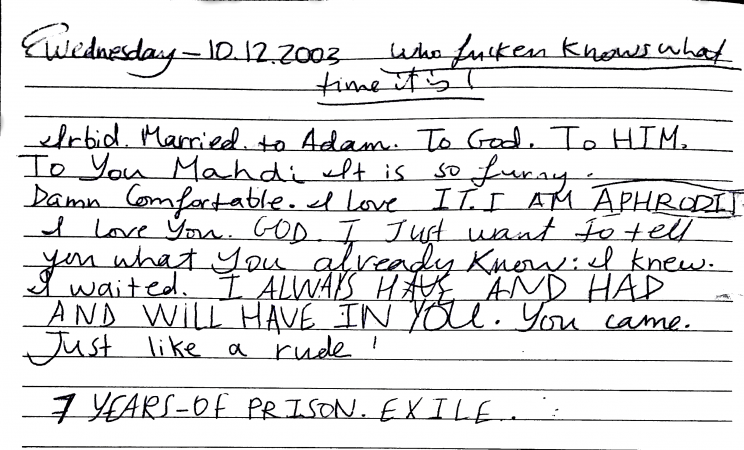 Wednesday - 10.12.2003 who fucken knows what
time it is!
Irbid. Married. to Adam. To God. To HIM.
To You Mahdi It is so funny.
Damn Comfortable. I love IT. I AM APHRODIT
I love You. GOD. I Just want to tell
you what You already Know: I knew.
I waited. I ALWAYS HAVE AND HAD
AND WILL HAVE IN YOU. You came.
Just like a rude!
7 YEARS-OF PRISON. EXILE.